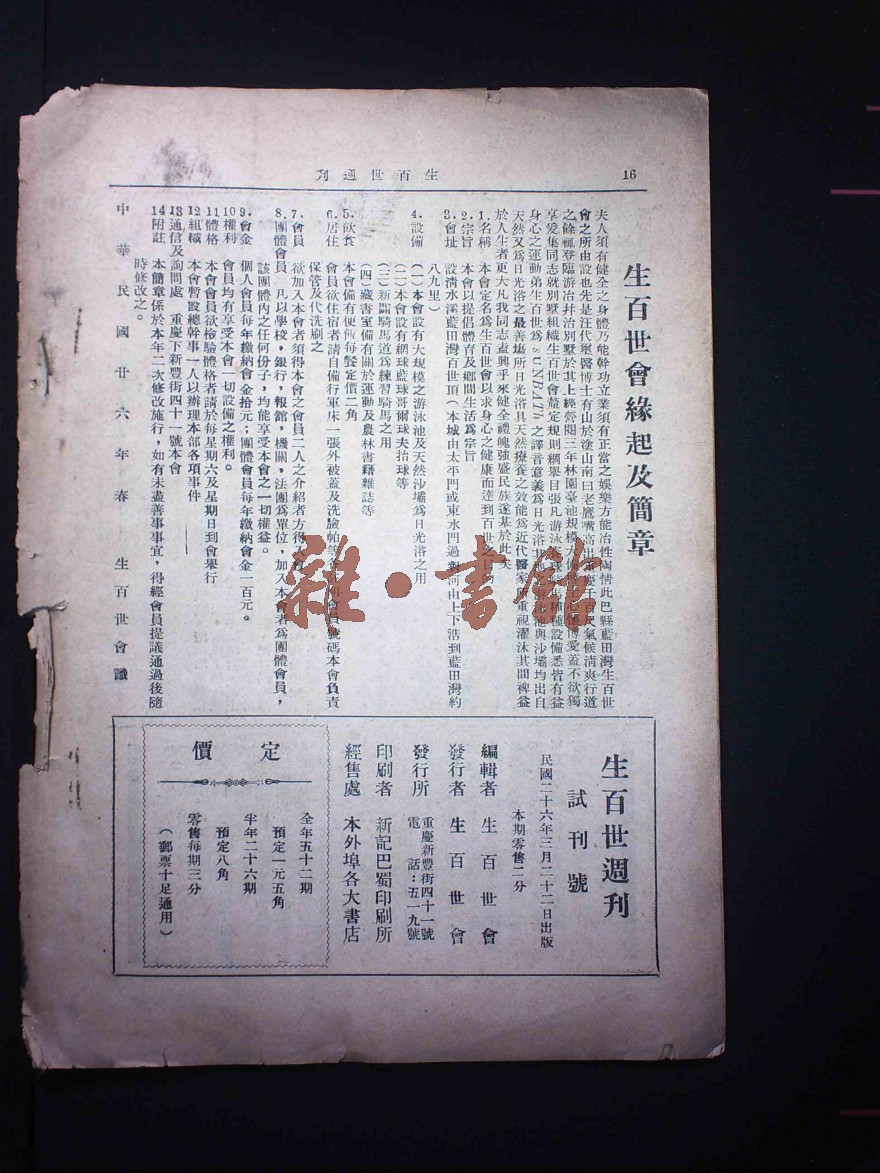 16
生百世週刊
生百世會緣起及簡章
夫人須有健全之身體乃能幹功立業須有正當之娛樂方能冶性陶情此巴縣藍田灣生百世
會之所由設也先是汪代璽醫博士有山於塗山南曰老鷹嘴高出重慶千百尺氣候清爽行道
之餘輒登臨游冶幷治別墅於其上經營閱三年林園臺池規模大備博愛蓋不欲獨
享爰集同志就別墅組織生百世會釐定規則綱舉目張凡游泳種種設備悉皆有益
身心之運動弟生百世爲SUNBATh之譯音意義爲日光浴其地游泳池與沙壩均出自
天然又爲日光浴之最善塲所日光浴具天然療養之效能爲近代醫家所重視濯沐其間裨益
於人生者更大凡我同志盍興乎來健全禮魄強盛民族遂基於此矣
1.名稱 本會定名爲生百世會以求身心之健康而達到百世之目的
2.宗旨 本會以提倡體育及鄉間生活爲宗旨
3.會址 設清水溪藍田灣百世頂(本城由太平門或東水門過對河由上下浩到藍田灣約
八九里)
4.設備 (一)本會設有大規模之游泳池及天然沙壩爲日光浴之用
(二)本會設有網球籃球哥爾球夫抬球等
(三)新闢騎馬道爲練習騎馬之用
(四)藏書室備有關於運動及農林書籍雜誌等
5.飲食 本會備有便飯每餐定價二角
6.居住 會員欲住宿者請自備行軍床一張外被蓋及洗臉帕等會員號碼本會負責
保管及代洗刷之
7.會員 欲加入本會者須得本會之會員二人之介紹者方得入會
8.團體會員 凡以學校,銀行,報館,機關,法團爲單位,加入本會者爲團體會員,
該團體內之任何份子,均能享受本會之一切權益。
9.會金 個人會員每年繳納會金拾元;團體會員每年繳納會金一百元。
10權利 會員均有享受本會一切設備之權利。
11體格 本會會員欲檢驗體格者請於每星期六及星期日到會舉行
12組織 本會暫設總幹事一人以辦理本部各項事件
13通信及詢問處 重慶下新豐街四十一號本會
14附註 本簡章係於本年二次修改施行,如有未盡善事事宜,得經會員提議通過後隨
時修改之。
中華民國廿六年春 生百世會識
生百世週刊
試刊號
民國二十六年三月二十二日出版
本期零售二分
編輯者 生百世會
發行者 生百世會
發行所 重慶新豐街四十一號
電話:五一九號
印刷者 新記巴蜀印刷所
經售處 本外埠各大書店
定價
全年五十二期
預定一元五角
半年二十六期
預定八角
零售每期三分
(郵票十足通用)
雜·書館